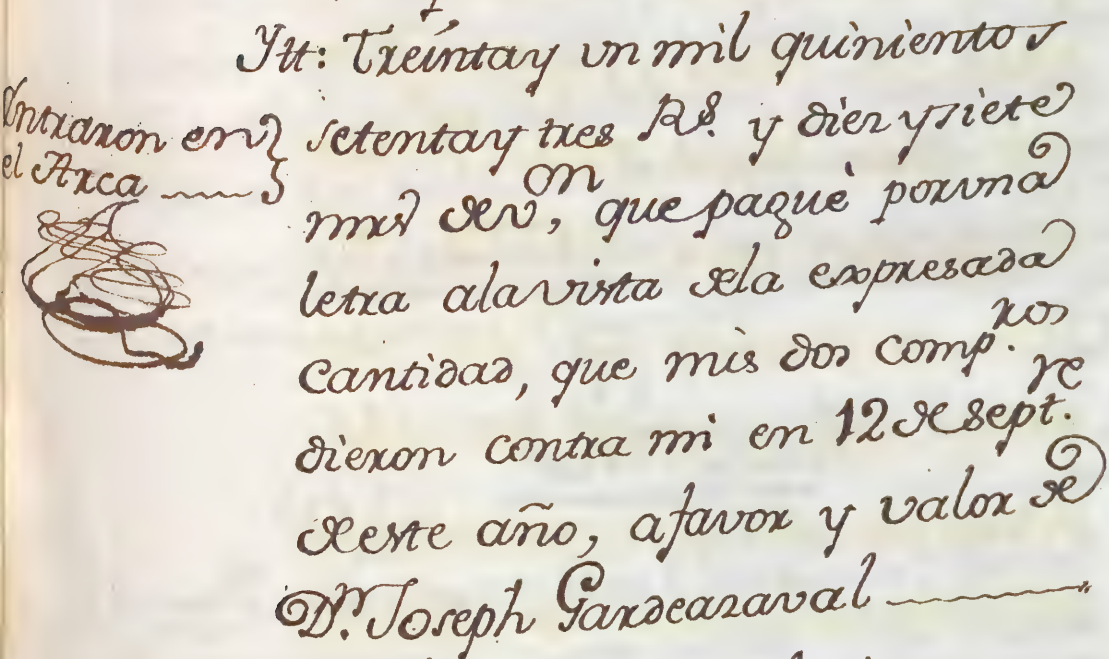 Ytt: Treinta y un mil quinientos
Entraron en
el Arca
setenta y tres Rs. y diez y siete
mrs de von, que paguè por una
letra a la vista de la expresada
Cantidad, que mis dos comp.ros
dieron contra mi en 12 de Sept.re
de este año, a favor y valor de
Dn. Joseph Gardeazaval